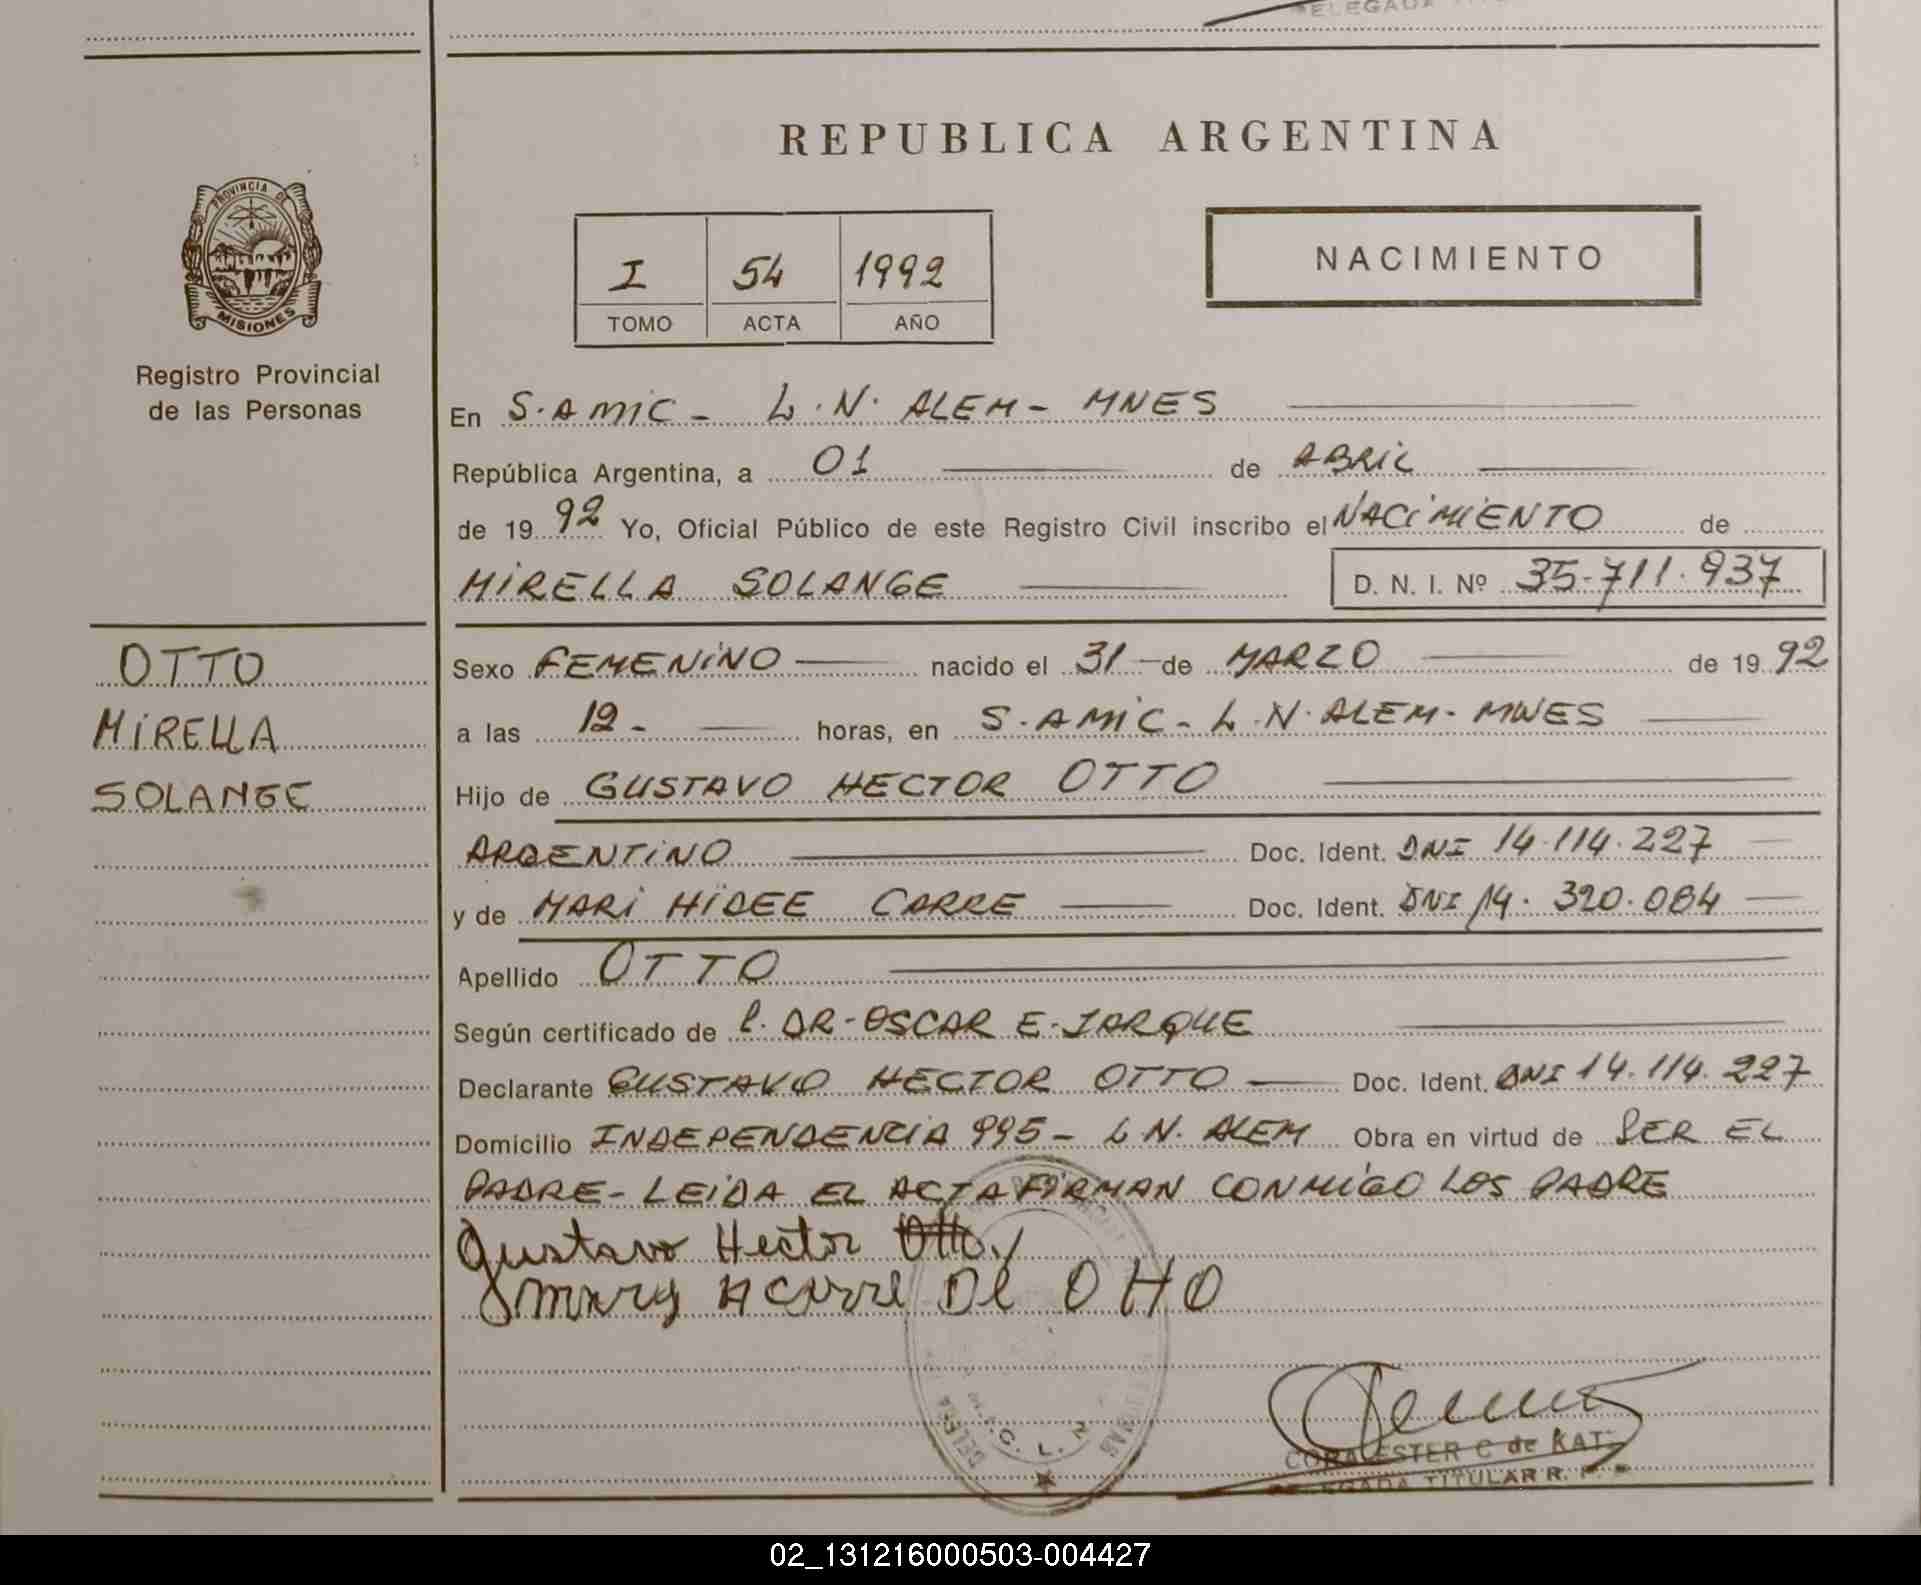 REPUBLICA ARGENTINA
PROVINCIA DE
MISIONES
Registro Provincial
de las Personas
I 54 1992
TOMO ACTA AÑO
NACIMIENTO
En S. AMIC - L. N. ALEM - MNES
República Argentina, a 01 de ABRIL
de 19 92 Yo, Oficial Público de este Registro Civil inscribo el NACIMIENTO de
MIRELLA SOLANGE D. N. I. Nº 35.711.937
OTTO
MIRELLA
SOLANGE
Sexo FEMENINO nacido el 31 de MARZO de 19 92
a las 12- horas, en S. AMIC - L. N. ALEM - MNES
Hijo de GUSTAVO HECTOR OTTO
ARGENTINO Doc. Ident. DNI 14.114.227
y de MARI HIDEE CARRE Doc. Ident. DNI 14.320.084
Apellido OTTO
Según certificado de DR-OSCAR E. JARQUE
Declarante GUSTAVO HECTOR OTTO Doc. Ident. DNI 14.114.227
Domicilio INDEPENDENCIA 995 - L N. ALEM Obra en virtud de SER EL
PADRE - LEIDA EL ACTA FIRMAN CONMIGO LOS PADRE
Gustavo Hector Otto
Mary H Carre De Otto
ESTER C de KAT
TITULAR R. P.
02_131216000503-004427